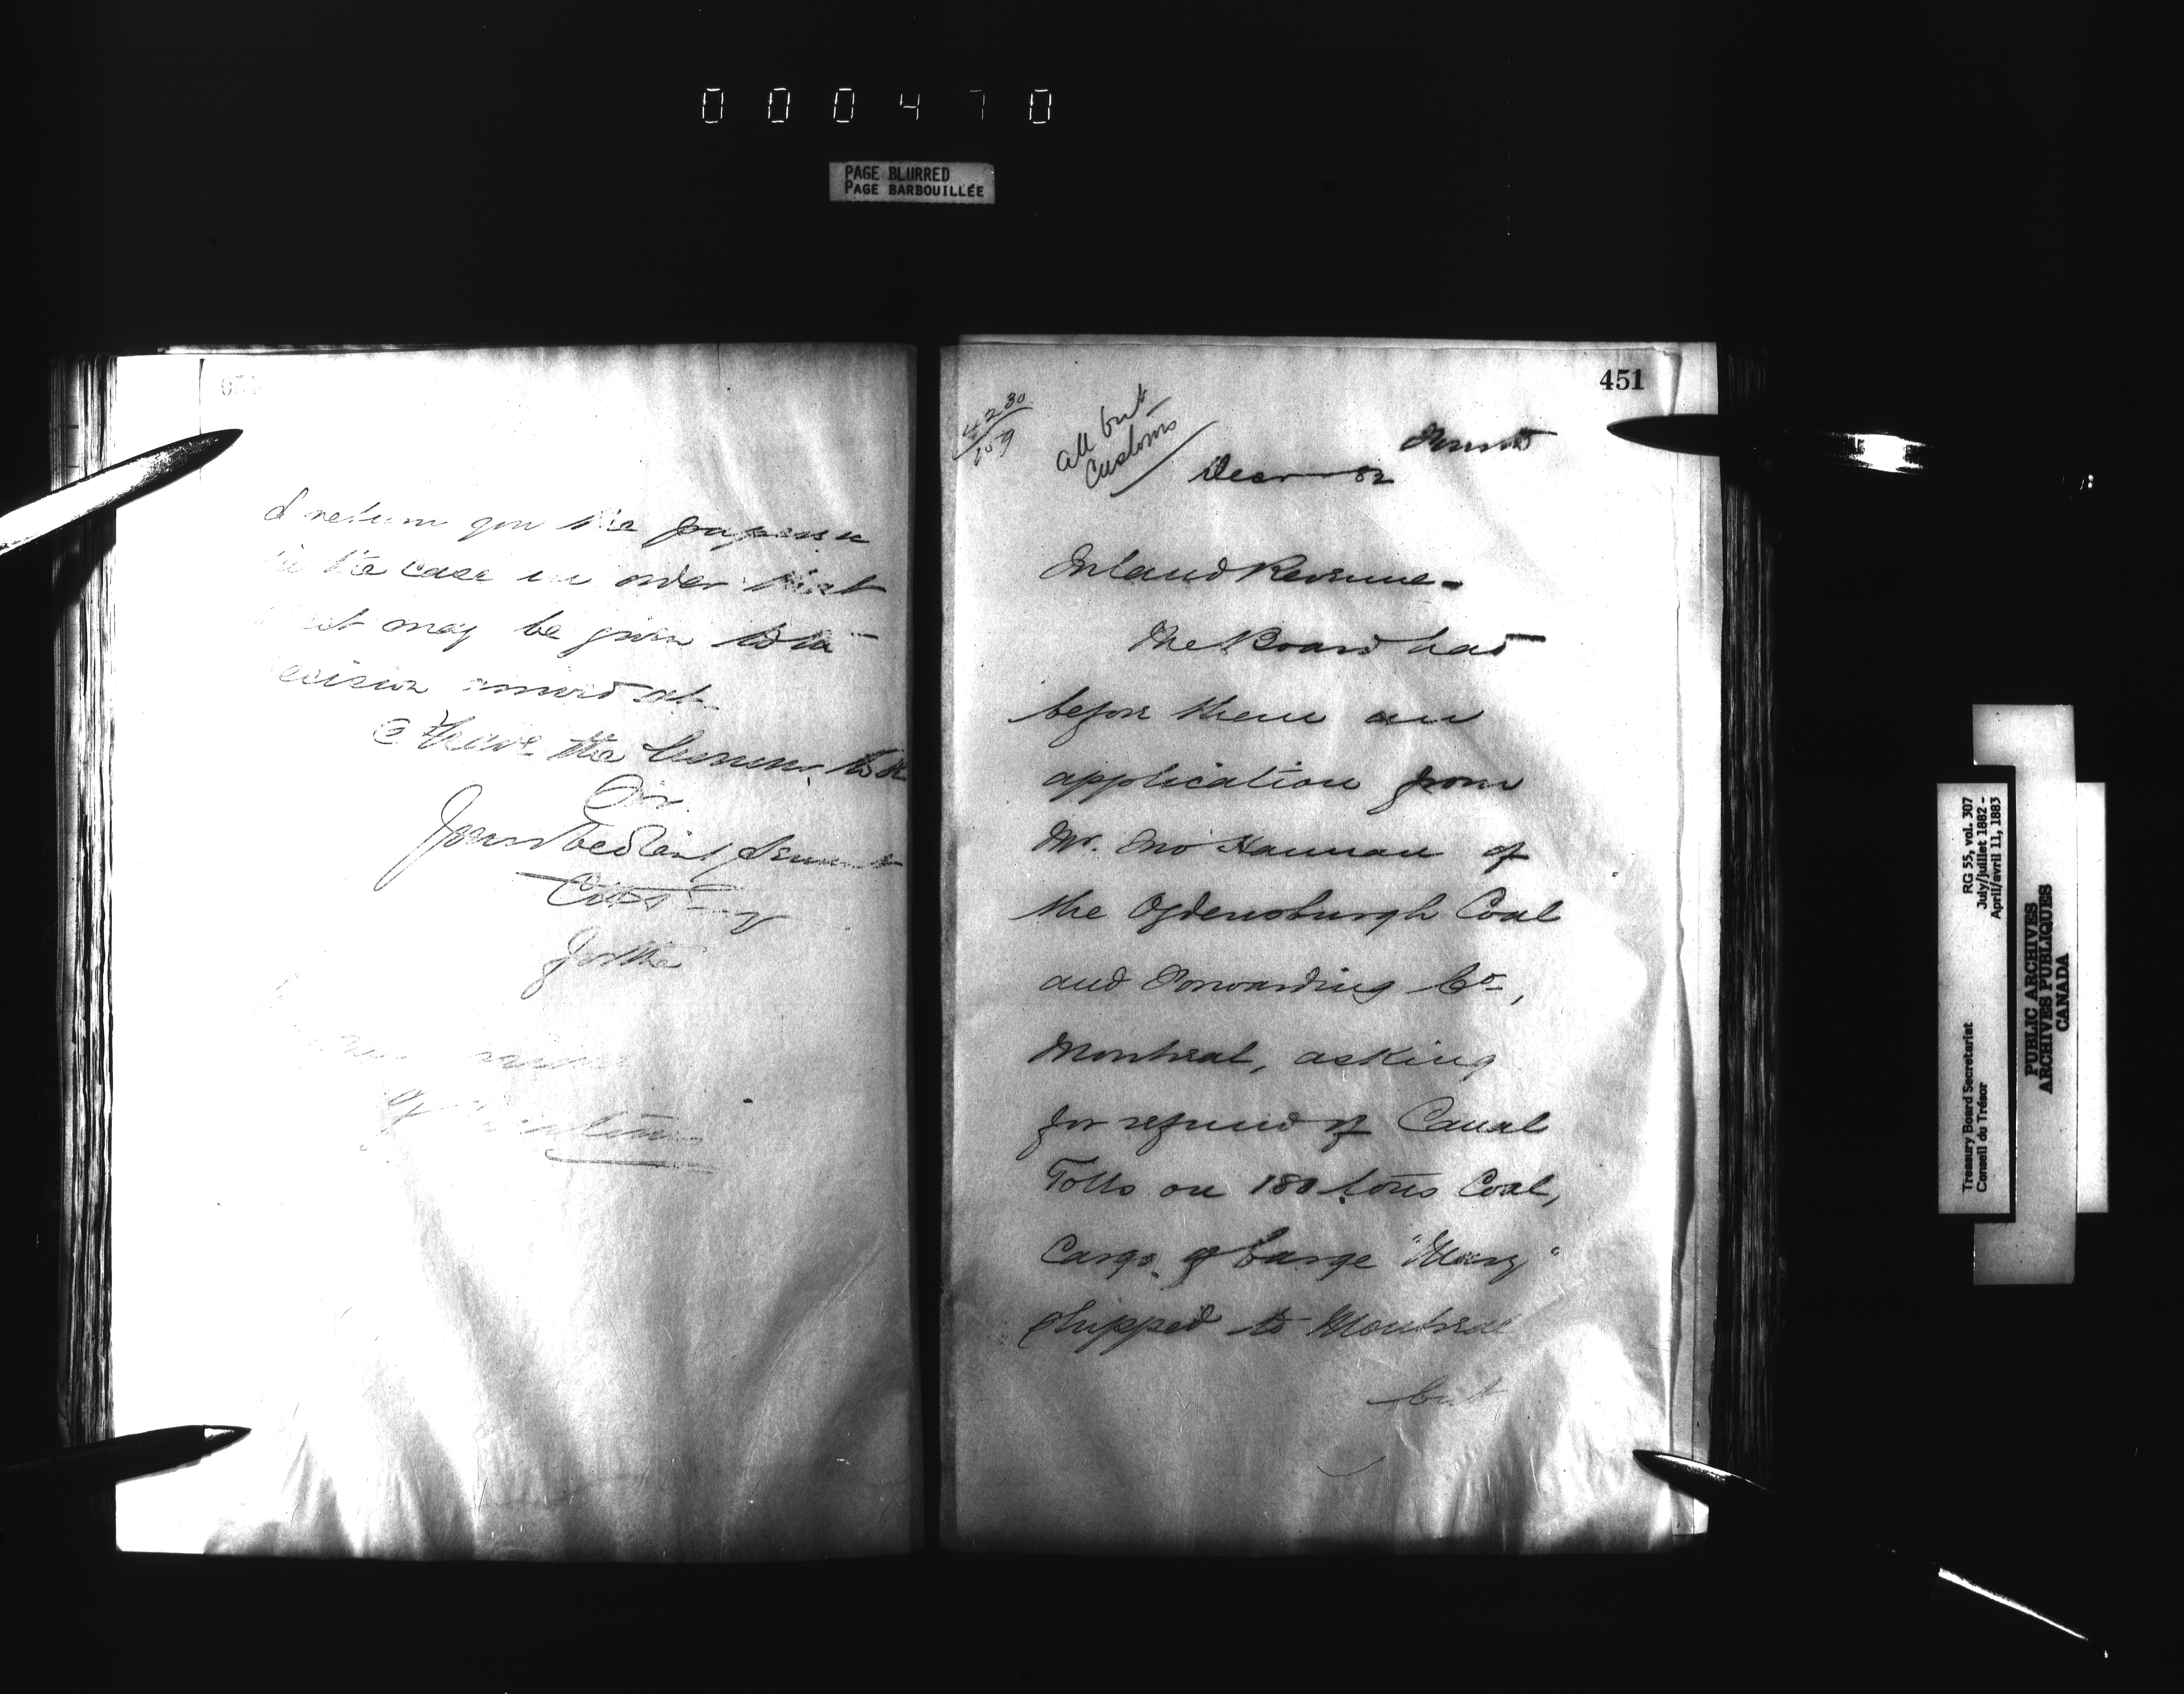 000470
PAGE BLURRED
PAGE BARBOUILLÉE
I return you the papers
the case in order that
may be given to
ecision arrived at.
I have the honour to be
Sir
Your obedient servant
for the
of
451
4230
159
all but
Customs
Decr 82
Inland Revenue-
The Board had
before them an
application from
Mr. Jno Hannan of
the Ogdensburgh Coal
and Forwarding Co,
Montreal, asking
for refund of Canal
Tolls on 180 tons Coal,
Cargo of barge "Mary"
shipped to Montreal
but
RG 55, vol. 307
July/juillet 1882 -
April/avril 11, 1883
Treasury Board Secretariat
Conseil du Trésor
PUBLIC ARCHIVES
ARCHIVES PUBLIQUES
CANADA